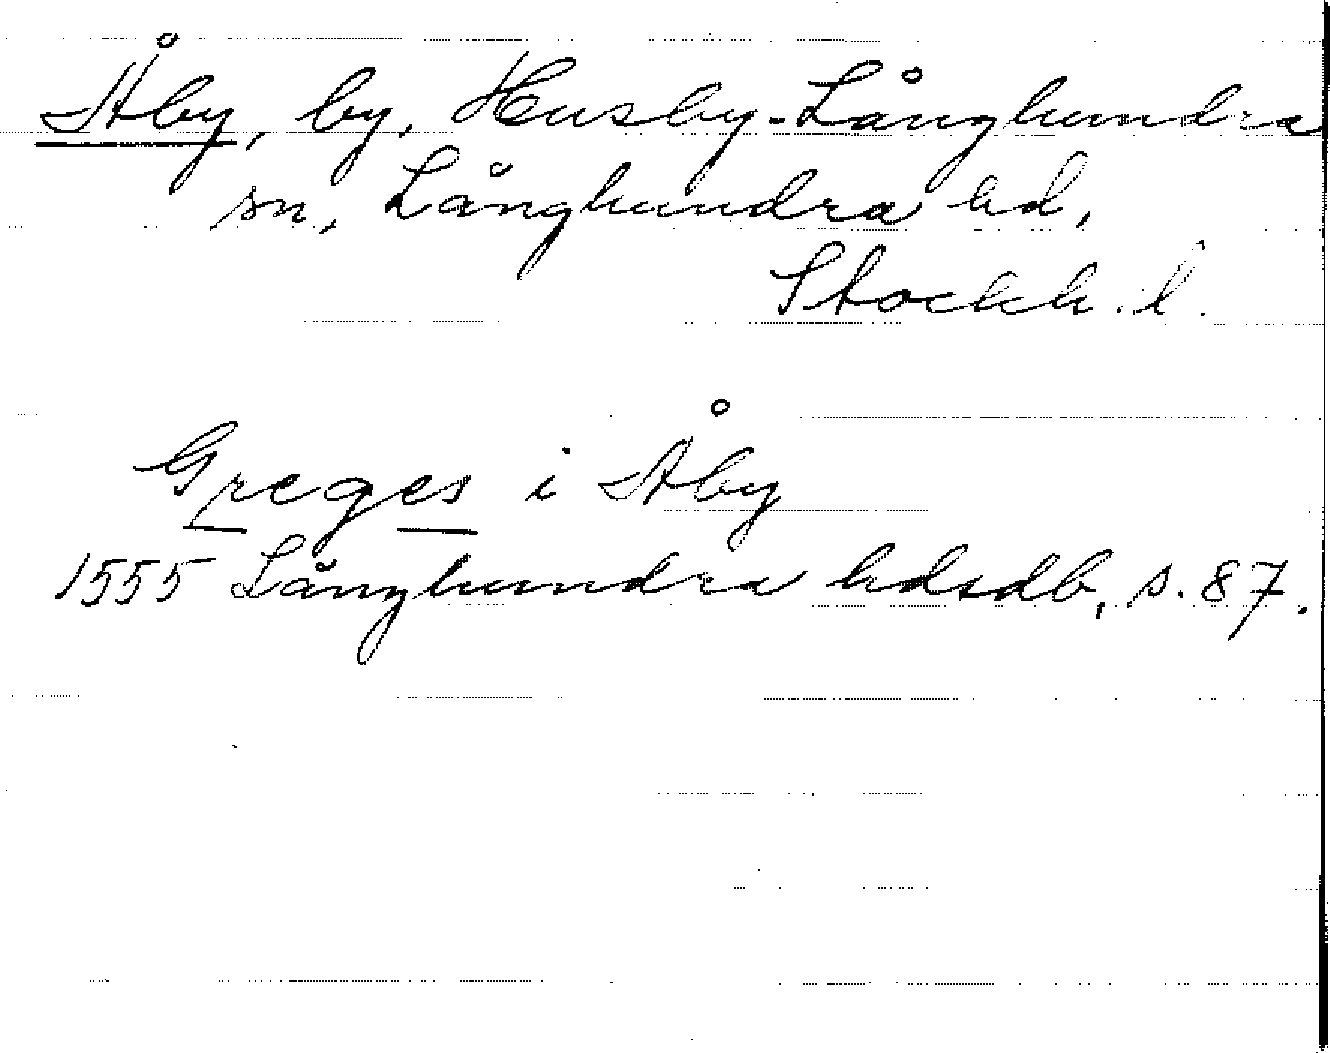 Åby, by, Husby-Långhundra
sn, Långhundra hd,
Stockh. l.
Greges i Åby
1555 Långhundra hdsdb, s. 87.